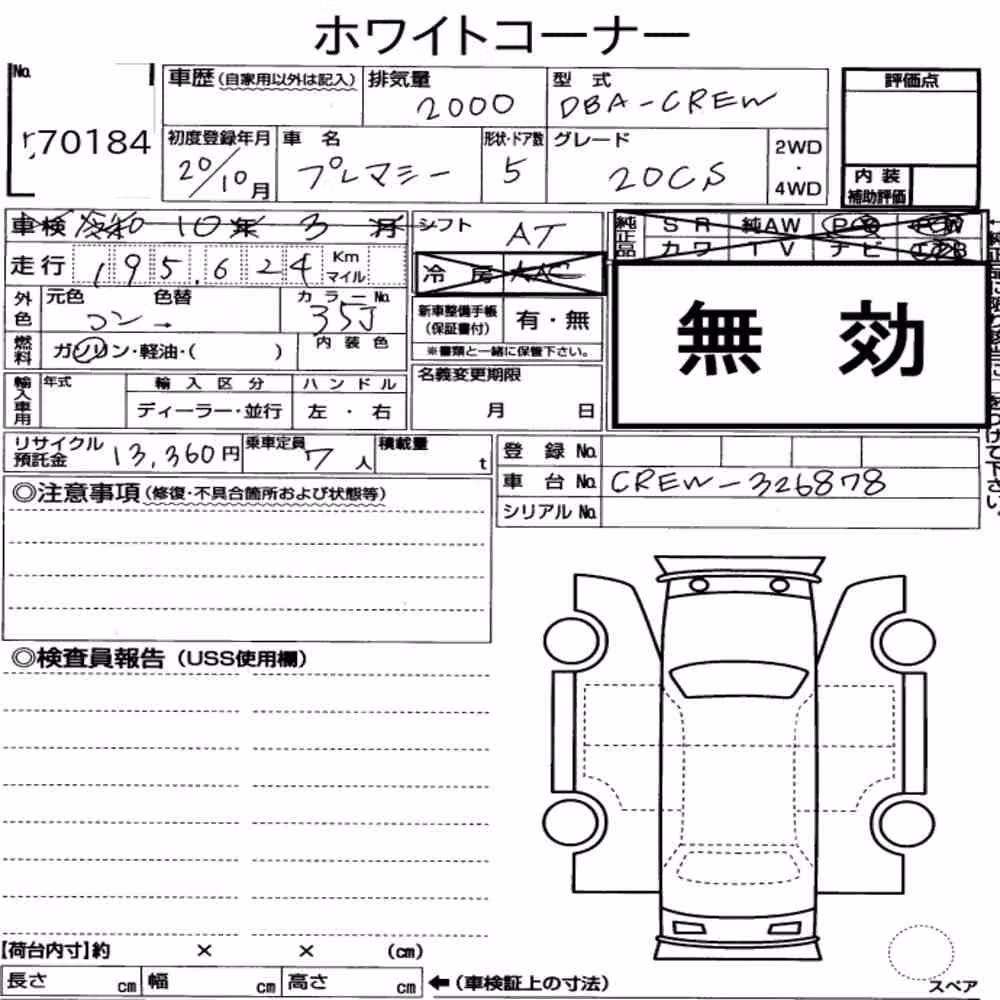 ホワイトコーナー
No. 70184
車歴(自家用以外は記入) 排気量 2000 型式 DBA-CREW 評価点
初度登録年月 20/10月 車名 プレマシー 形状・ドア数 5 グレード 20CS 2WD・4WD
内装補助評価
車検 令和 10年 3月 シフト AT 純正品 SR 純AW PS PW
カワ TV ナビ エアB
走行 195,624 Km マイル 冷房 AAC
外色 元色 コン 色替 カラーNo. 35J 新車整備手帳(保証書付) 有・無
※書類と一緒に保管下さい。
無効
燃料 ガソリン・軽油・( ) 内装色
輸入車用 年式 輸入区分 ディーラー・並行 ハンドル 左・右 名義変更期限 月 日
リサイクル預託金 13,360円 乗車定員 7人 積載量 t
登録No.
車台No. CREW-326878
シリアルNo.
◎注意事項(修復・不具合箇所および状態等)
◎検査員報告(USS使用欄)
【荷台内寸】約 × × (cm)
長さ cm 幅 cm 高さ cm ←(車検証上の寸法)
スペア